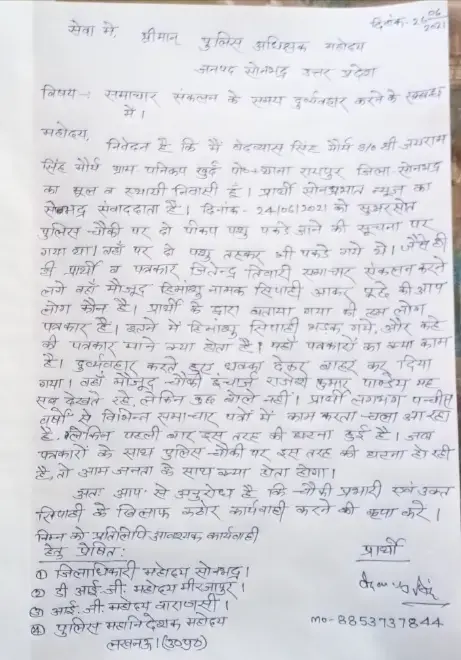 दिनांक- 26/06/2021
सेवा में,
श्रीमान् पुलिस अधिक्षक महोदय
जनपद सोनभद्र उत्तर प्रदेश
विषय -: समाचार संकलन के समय दुर्व्यवहार करने के सम्बन्ध
में।
महोदय,
निवेदन है कि मैं वेदव्यास सिंह मौर्य S/O श्री जयराम
सिंह मौर्य ग्राम पनिकप खुर्द पो०+थाना रायपुर जिला-सोनभद्र
का मूल व स्थायी निवासी हूँ। प्रार्थी सोनप्रभात न्यूज का
सोनभद्र संवाददाता है। दिनांक- 24/06/2021 को सुअरसोत
पुलिस चौकी पर दो पीकप पशु पकड़े जाने की सूचना पर
गया था। वहाँ पर दो पशु तस्कर भी पकड़े गये थे। जैसे ही
ही प्रार्थी व पत्रकार जितेन्द्र तिवारी समाचार संकलन करने
लगे वहाँ मौजूद हिमांशु नामक सिपाही आकर पूछे की आप
लोग कौन है। प्रार्थी के द्वारा बताया गया की हम लोग
पत्रकार है। इतने में हिमांशु सिपाही भड़क गये, और कहे
की पत्रकार माने क्या होता है। यहाँ पत्रकारों का क्या काम
है। दुर्व्यवहार करते हुए धक्का देकर बाहर कर दिया
गया। वहाँ मौजूद चौकी इंचार्ज राजेश कुमार पाण्डेय यह
सब देखते रहे, लेकिन कुछ बोले नहीं। प्रार्थी लगभग पच्चीस
वर्षों से विभिन्न समाचार पत्रों में काम करता चला आ रहा
है, लेकिन पहली बार इस तरह की घटना हुई है। जब
पत्रकारों के साथ पुलिस चौकी पर इस तरह की घटना हो रही
है, तो आम जनता के साथ क्या होता होगा।
अतः आप से अनुरोध है कि चौकी प्रभारी एवं उक्त
सिपाही के खिलाफ कठोर कार्यवाही करने की कृपा करें।
निम्न को प्रतिलिपि आवश्यक कार्यवाही
हेतु प्रेषित:
प्रार्थी
① जिलाधिकारी महोदय सोनभद्र।
② डी आई.जी. महोदय मीरजापुर।
③ आई.जी. महोदय वाराणसी।
④ पुलिस महानिदेशक महोदय
लखनऊ। (उ०प्र०)
mo-8853737844